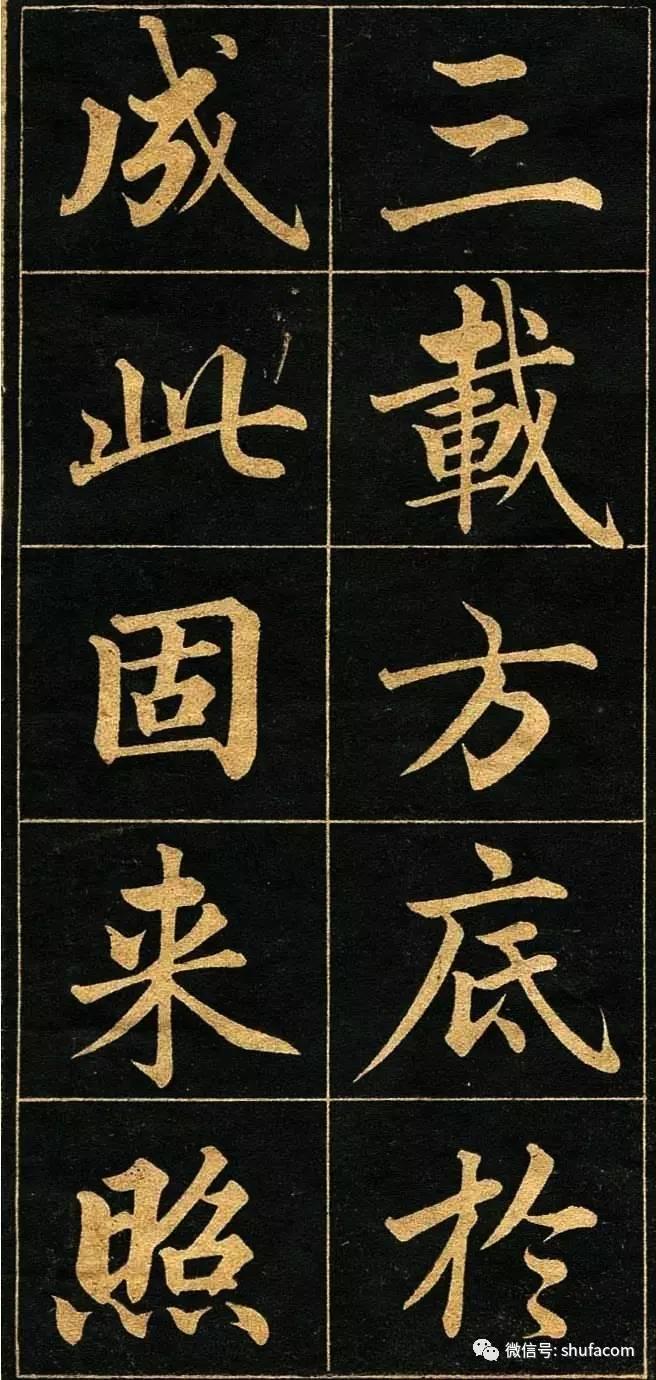 三載方底於
成此固来照
微信号: shufacom